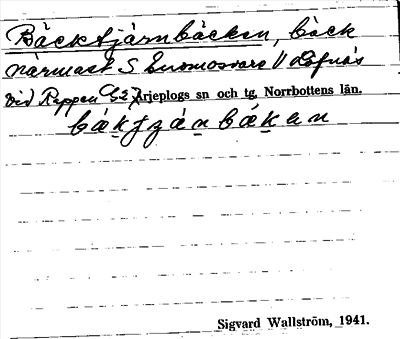 Bäcktjärnbäcken, bäck
närmast S Suomosvare V Löfnäs
vid Rappen Arjeplogs sn och tg. Norrbottens län.
Sigvard Wallström, 1941.